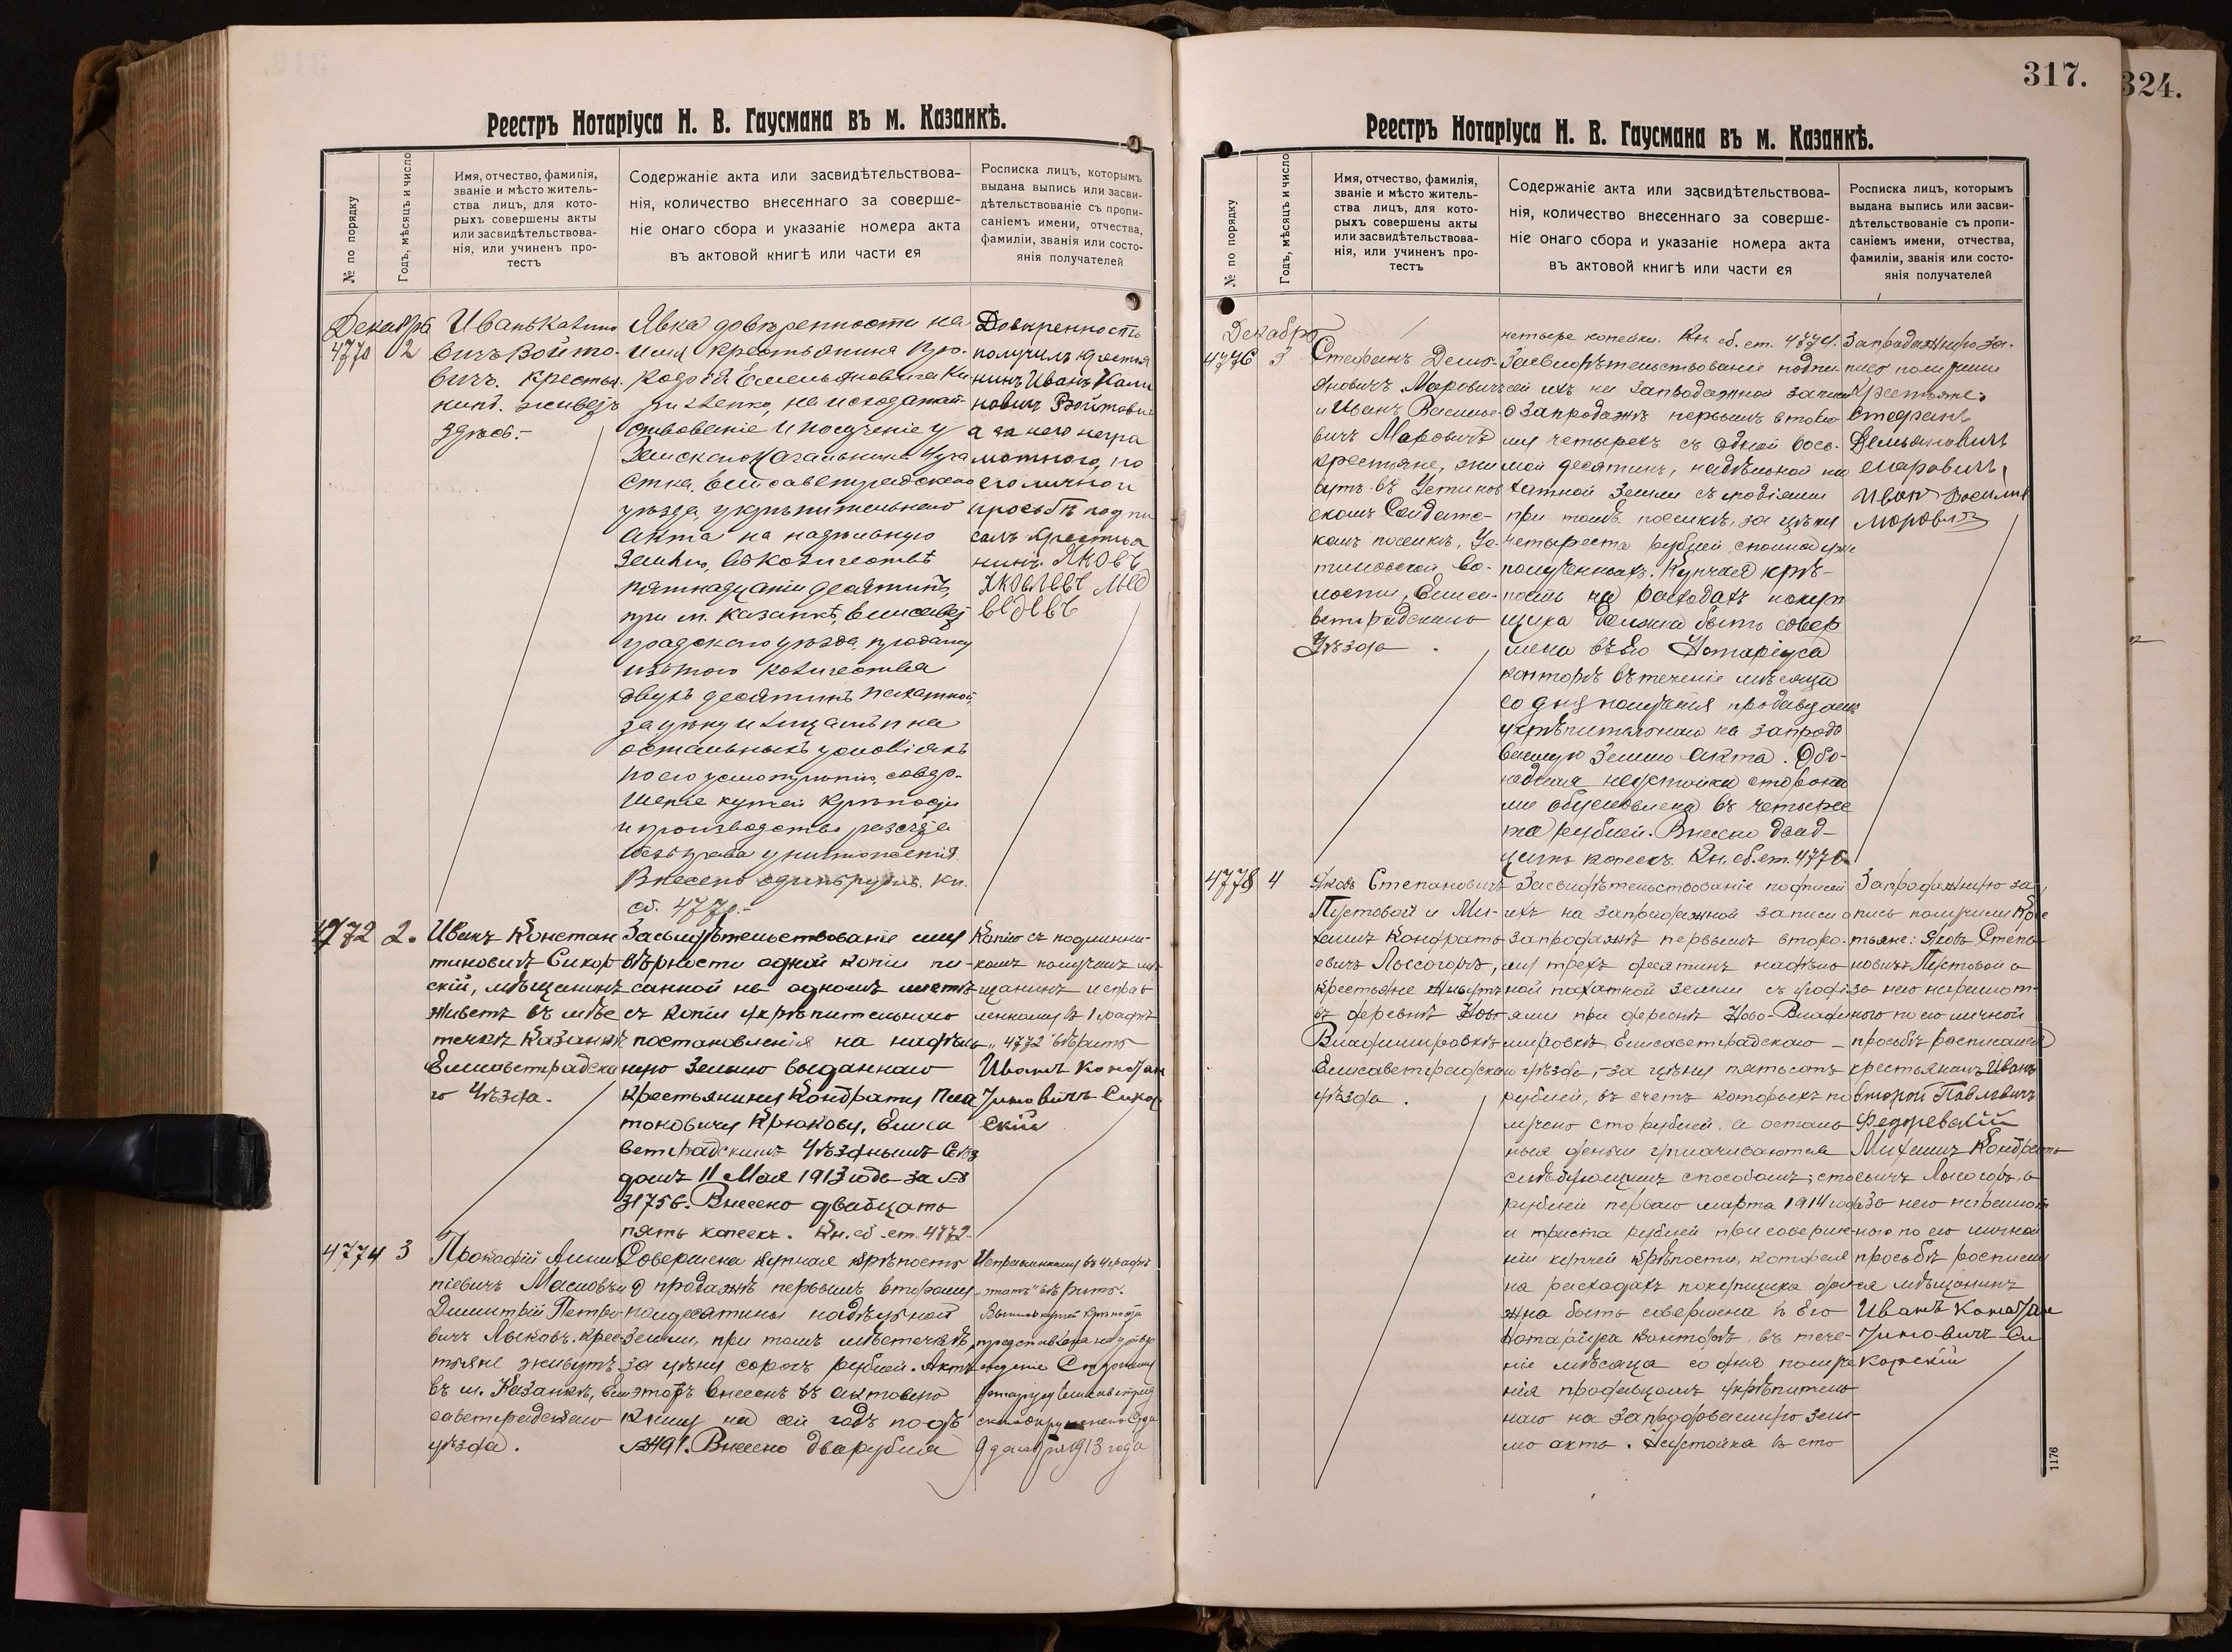 317.
324.
Реестръ Нотаріуса Н. В. Гаусмана въ м. Казанкѣ.
№ по порядку
Годъ, мѣсяцъ и число
Имя, отчество, фамилія,
званіе и мѣсто житель-
ства лицъ, для кото-
рыхъ совершены акты
или засвидѣтельствова-
нія, или учиненъ про-
тестъ
Содержаніе акта или засвидѣтельствова-
нія, количество внесеннаго за соверше-
ніе онаго сбора и указаніе номера акта
въ актовой книгѣ или части ея
Росписка лицъ, которымъ
выдана выпись или засви-
дѣтельствованіе съ пропи-
саніемъ имени, отчества,
фамиліи, званія или состо-
янія получателей
Декабря
4770 2
Иванъ Калино
вичъ Войто-
вичъ. крестья-
нинъ. живетъ
здѣсь.-
Явка довѣренности на
имя крестьянина Про-
Емельяновича Ки-
на исходатай-
ствованіе и полученіе у
Земскаго Начальника уча
стка, Елисаветградскаго
уѣзда, укрѣпительнаго
акта на надѣльную
землю, въ количествѣ
пятнадцати десятинъ,
при м. Казанкѣ, Елисавет
градскаго уѣзда, продажу
изъ того количества
двухъ десятинъ пахатной,
за цѣну и лицамъ и на
остальныхъ условіяхъ
по его усмотрѣнію, совер-
шеніе купчей крѣпости
и производство
безъ права уничтоженія.
Внесено одинъ рубль. Кн.
сб. 4770.-
Довѣренность
получилъ крестья
нинъ Иванъ Кали
новичъ Войтовичъ
а за него негра
мотного, по
его личной
просьбѣ подпи
салъ крестья
нинъ. Яковъ
Яковлевъ Мед
ведевъ
4772 2.
Иванъ Констан
тиновичъ Сикор
скій, мѣщанинъ
живетъ въ мѣс
течкѣ Казанкѣ
Елисаветградска
го Уѣзда.
Засвидѣтельствованіе ему
вѣрности одной копіи пи-
санной на одномъ листѣ
съ копіи укрѣпительнаго
постановленія на надѣль
ную землю выданнаго
крестьянину Кондрату Пла
тоновичу Крюкову, Елиса
ветградскимъ Уѣзднымъ Съѣз
домъ 11 Мая 1913 года за №
31756. Внесено двадцать
пять копеекъ. Кн. сб. ст. 4772.
Копію съ подлинни-
комъ получилъ мѣ
щанинъ исправ
ленному въ 1 графѣ
„4772" вѣрить
Иванъ Констан
тиновичъ Сикор
скій
4774 3
Прокофій Алим
піевичъ Масловъ и
Димитрій Петро-
вичъ Лыковъ. кре-
стьяне живутъ
въ м. Казанкѣ, Ели
саветградскаго
уѣзда.
Совершена купчая крѣпость
о продажѣ первымъ второму
полдесятины надѣльной
земли, при томъ мѣстечкѣ,
за цѣну сорокъ рублей. Актъ
этотъ внесенъ въ актовую
книгу на сей годъ подъ
№ 491. Внесено два рубля
Исправленному въ 4 графѣ
„этотъ" вѣрить.
Выпись купчей крѣпости
представлена на утвер
жденіе Старшему
Нотаріусу Елисаветград
скаго окружнаго Суда
9 декабря 1913 года
Реестръ Нотаріуса Н. В. Гаусмана въ м. Казанкѣ.
№ по порядку
Годъ, мѣсяцъ и число
Имя, отчество, фамилія,
званіе и мѣсто житель-
ства лицъ, для кото-
рыхъ совершены акты
или засвидѣтельствова-
нія, или учиненъ про-
тестъ
Содержаніе акта или засвидѣтельствова-
нія, количество внесеннаго за соверше-
ніе онаго сбора и указаніе номера акта
въ актовой книгѣ или части ея
Росписка лицъ, которымъ
выдана выпись или засви-
дѣтельствованіе съ пропи-
саніемъ имени, отчества,
фамиліи, званія или состо-
янія получателей
Декабря
4776 3
Стефанъ Демья-
новичъ Моровичъ
и Иванъ Василье-
вичъ Моровичъ
крестьяне, жи
вутъ въ Устинов
скомъ Солдатс-
комъ поселкѣ, Ус-
тиновской во-
лости, Елиса-
ветградскаго
Уѣзда.
четыре копейки. Кн. сб. ст. 4774.
Засвидѣтельствованіе подпи-
сей ихъ на запродажной записи
о запродажѣ первымъ второ
му четырехъ съ одной вось-
мой десятинъ, надѣльной па
хатной земли съ угодіями
при томъ поселкѣ, за цѣну
четыреста рублей, сполна уже
полученныхъ. Купчая крѣ-
пость на расходахъ покуп
щика должна быть совер
шена въ его Нотаріуса
конторѣ въ теченіе мѣсяца
со дня полученія продавцемъ
укрѣпительнаго на запродо
ванную землю акта. Обо-
юдная неустойка сторона
ми обусловлена въ четыре
ста рублей. Внесено двад-
цать копеекъ. Кн. сб. ст. 4776.
Запродажную за-
пись получили
крестьяне:
Стефанъ
Демьяновичъ
Моровичъ,
Иванъ Василів
Моровичъ
4778 4
Яковъ Степановичъ
Пустовой и Ми-
хаилъ Кондрать
евичъ Лысогоръ,
крестьяне живутъ
въ деревнѣ Ново
Владимировкѣ
Елисаветградскаго
уѣзда.
Засвидѣтельствованіе подписей
ихъ на запродажной записи о
запродажѣ первымъ второ-
му трехъ десятинъ надѣль
ной пахатной земли съ угоді
ями при деревнѣ Ново-Влади
мировкѣ Елисаветградскаго
уѣзда, за цѣну пятьсотъ
рублей, въ счетъ которыхъ по
лучено сто рублей, а осталь
ныя деньги уплачиваются
слѣдующимъ способомъ: сто
рублей перваго марта 1914 года
и триста рублей при соверше-
ніи купчей крѣпости, которая
на расходахъ покупщика дол
жна быть совершена въ его
Нотаріуса конторѣ, въ тече-
ніе мѣсяца со дня получе
нія продавцомъ укрѣпитель
наго на запродованную зем-
лю акта. Неустойка въ сто
Запродажную за-
пись получили кре
стьяне: Яковъ Степа
новичъ Пустовой а
за него неграмот-
ного по его личной
просьбѣ росписался
крестьянинъ Иванъ
второй Павловичъ
Федоревскій
Михаилъ Кондрать
евичъ Лысогоръ, а
за него неграмот
ного по его личной
просьбѣ росписал
ся мѣщанинъ
Иванъ Констан
тиновичъ Си
корскій
1176